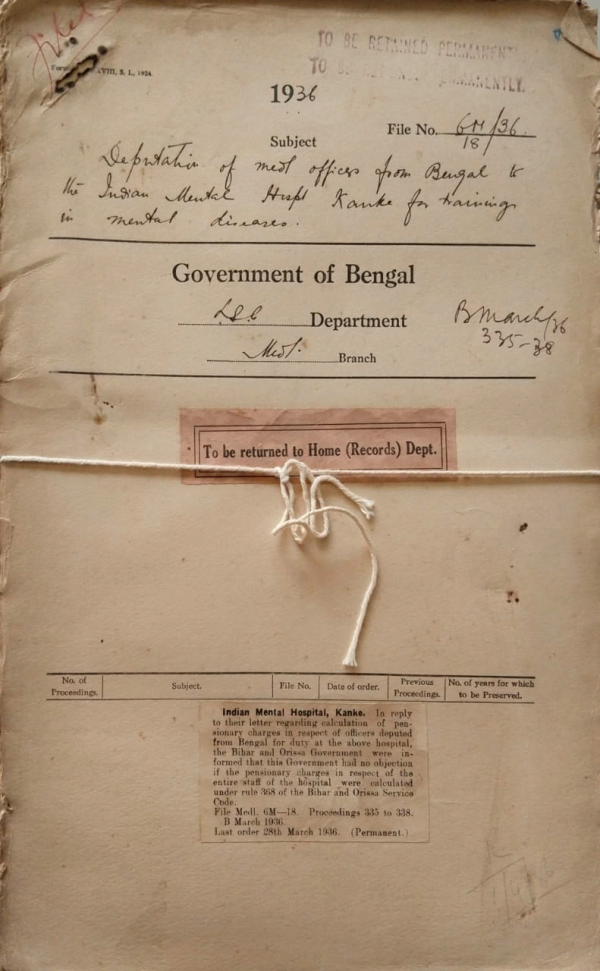 Filed
TO BE RETAINED PERMANENTLY
TO BE RETAINED PERMANENTLY.
XVIII, S. I., 1924.
1936
File No. 6M/36
18
Subject
Deputation of medl officers from Bengal to
the Indian Mental Hospl Kanke for training
in mental diseases.
Government of Bengal
Department
B March/36
335-38
Medl. Branch
To be returned to Home (Records) Dept.
No. of Proceedings. Subject. File No. Date of order. Previous Proceedings. No. of years for which to be Preserved.
Indian Mental Hospital, Kanke. In reply
to their letter regarding calculation of pen-
sionary charges in respect of officers deputed
from Bengal for duty at the above hospital,
the Bihar and Orissa Government were in-
formed that this Government had no objection
if the pensionary charges in respect of the
entire staff of the hospital were calculated
under rule 368 of the Bihar and Orissa Service
Code.
File Medl. 6M—18. Proceedings 335 to 338.
B March 1936.
Last order 28th March 1936. (Permanent.)